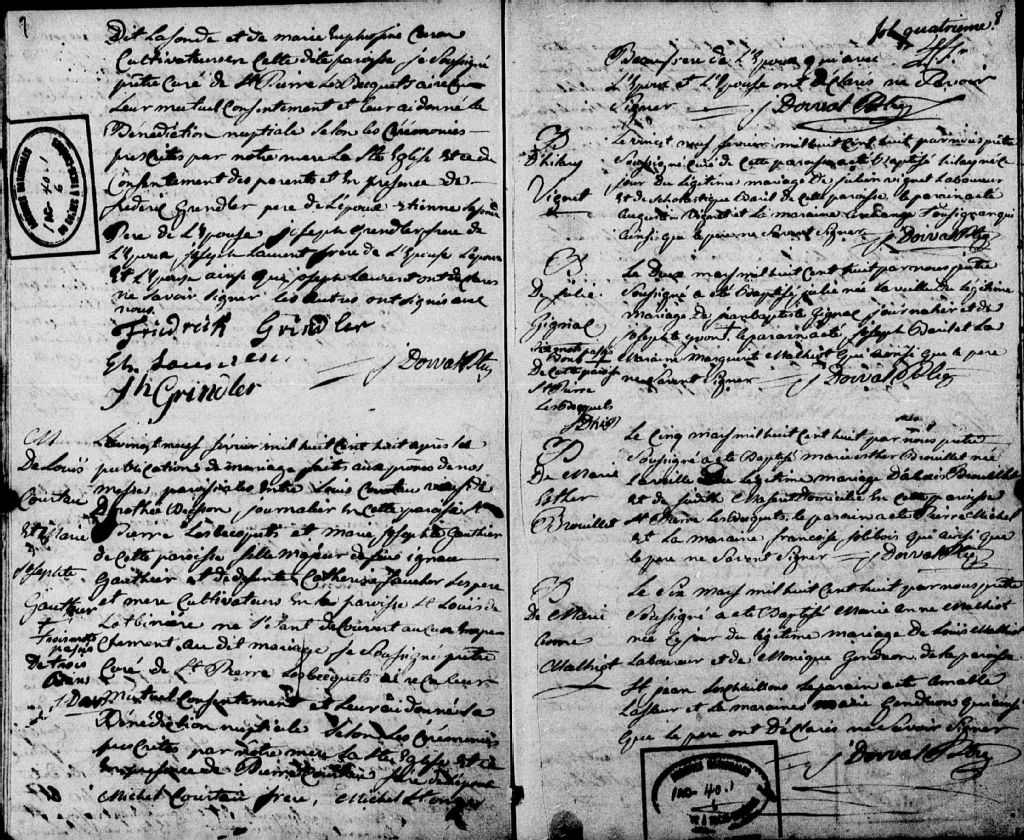 7
Dit Lasonde et de marie Euphrosine Caron
Cultivateurs en Cette dite paroisse je Soussigné
prêtre Curé de St Pierre Les Becquets ai recu
Leur mutuel Consentement et leur ai donné la
Bénédiction nuptiale Selon les Cérémonies
prescrites par notre mere La Ste Eglise et ce du
Consentement des parents et En présence de
federic Grindler pere de l'époux etienne
Pere de L'Epouse joseph Grendler frere de
L'Epoux, joseph Laurent frere de L'Epouse L'epoux
Et L'Epouse ainsi que joseph Laurent ont declarés
ne Savoir Signer les autres ont signés avec
nous.
Friedrick Grindler
Jh Grindler
j Dorval Ptre
M
De Louis
Courteau
Et Marie
josephte
Gauthier
Le vingt neuf février mil huit Cent huit après la
publication de mariage faite aux prones de nos
Messe paroissiales Entre Louis Courteau veuf de
Dorothée journalier En Cette paroisse St
Pierre Lesbecquets et Marie josephte Gauthier
de Cette paroisse fille majeur de feu ignace
Gauthier et de defunte Catherine faucher Les pere
et mere Cultivateurs En la paroisse St Louis de
Lotbiniere ne S'étant découvert aucun empe
chement au dit mariage je Soussigné prêtre
Curé de St Pierre Lesbecquets ai recu leur
Mutuel Consentement et leur ai donné la
Bénédiction nuptiale Selon les Cérémonies
prescrites par notre mere La Ste Eglise et ce
En presence de Pierre Courteau frere de l'epoux
Michel Courteau frere, Michel
8
fol quatrieme
Beaufrere de L'Epoux qui avec
L'Epoux et L'Epouse ont Declarés ne Savoir
Signer
j Dorval Ptre
B
D'hilery
Vignet
Le vingt neuf fevrier mil huit Cent huit par nous prêtre
Soussigné Curé de Cette paroisse a été Baptisé hilery né ce
jour du légitime mariage de julien vignet Laboureur
Et de Scholastique Baril de Cette paroisse, le parain a été
Augustin Vignet et La maraine Tousignan qui
ainsi que le pere ne Savent Signer j Dorval Ptre
B
De julie
Gignal
De Cette paroisse
St Pierre
Lesbecquets
Le Deux mars mil huit Cent huit par nous prêtre
Soussigné a été Baptisé julie née la veille du légitime
Mariage de jean baptiste Gignal journalier et de
josephte yvon, le parain a été joseph Baril et La
Maraine Marguerite Malhiot qui ainsi que le pere
ne Savent Signer j Dorval Ptre
B
De Marie
Esther
Brouillet
Le Cinq mars mil huit Cent huit par nous prêtre
Soussigné a été Baptisé marie esther Brouillet née
La veille du légitime mariage D'alexis Brouillet
et de judith Massicot Domiciliés En Cette paroisse
St Pierre Lesbecquets, le parain a été Pierre Michel
et La maraine françoise jolibois qui ainsi que
le pere ne Savent Signer j Dorval Ptre
B
De Marie
Anne
Malhiot
Le Six mars mil huit Cent huit par nous prêtre
Soussigné a été Baptisé Marie anne Malhiot
née Ce jour du légitime mariage de Louis Malhiot
Laboureur et de Monique Gendron de la paroisse
St jean Deschaillons Le parain a été amable
Lasieur et la maraine marie Gendrons qui ainsi
que le pere ont Déclarés ne Savoir Signer
j Dorval Ptre